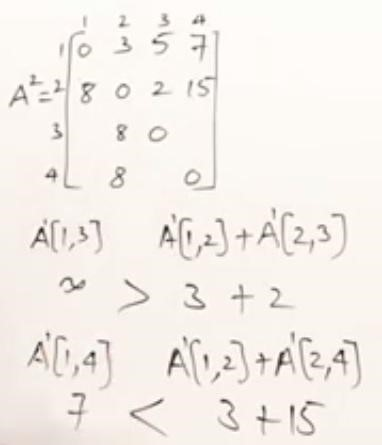 1 2 3 4
1 0 3 5 7
A²= 2 8 0 2 15
3 8 0
4 8 0
A¹[1,3] A¹[1,2]+A¹[2,3]
∞ > 3 + 2
A¹[1,4] A¹[1,2]+A¹[2,4]
7 < 3+15